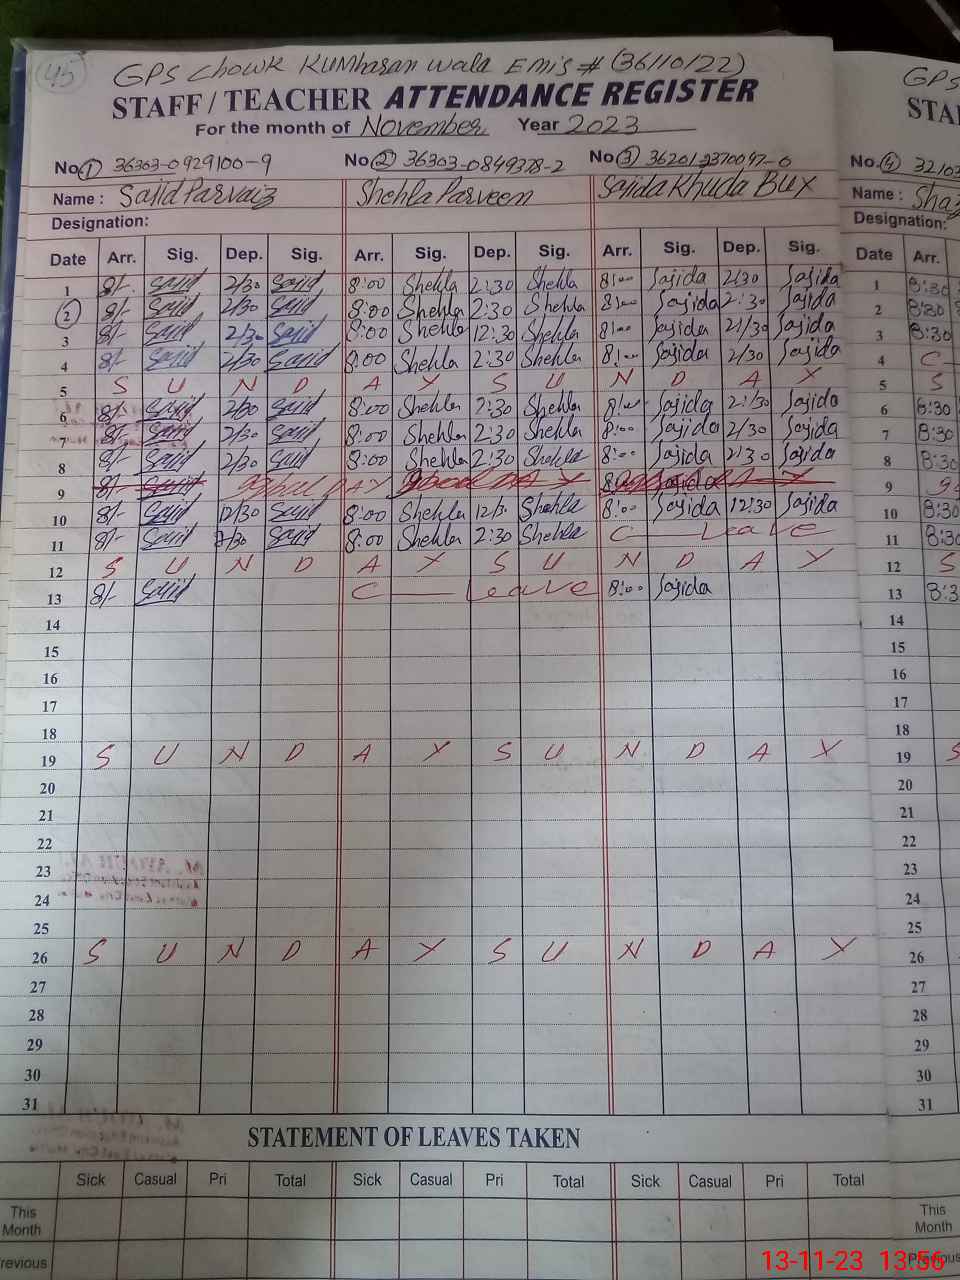 45
GPS Chowk Kumharan Wala Emis # (36110122)
STAFF / TEACHER ATTENDANCE REGISTER
For the month of November Year 2023
No. 1 36303-0929100-9 No 2 36303-0849378-2 No 3 36201-2370097-0
Name : Sajid Parvaiz Shehla Parveen Sajida Khuda Bux
Designation:
Date Arr. Sig. Dep. Sig. Arr. Sig. Dep. Sig. Arr. Sig. Dep. Sig.
1 8/- Sajid 2/30 Sajid 8:00 Shehla 2:30 Shehla 8:00 Sajida 2/30 Sajida
2 8/- Sajid 2/30 Sajid 8:00 Shehla 2:30 Shehla 8:00 Sajida 2:30 Sajida
3 8/- Sajid 2/30 Sajid 8:00 Shehla 12:30 Shehla 8:00 Sajida 2/30 Sajida
4 8/- Sajid 2/30 Sajid 8:00 Shehla 2:30 Shehla 8:00 Sajida 2/30 Sajida
5 S U N D A Y S U N D A Y
6 8/- Sajid 2/30 Sajid 8:00 Shehla 2:30 Shehla 8:00 Sajida 2:30 Sajida
7 8/- Sajid 2/30 Sajid 8:00 Shehla 2:30 Shehla 8:00 Sajida 2/30 Sajida
8 8/- Sajid 2/30 Sajid 8:00 Shehla 2:30 Shehla 8:00 Sajida 2:30 Sajida
9 8/- Sajid
10 8/- Sajid 12/30 Sajid 8:00 Shehla 12/3 Shehla 8:00 Sajida 12:30 Sajida
11 8/- Sajid 2/30 Sajid 8:00 Shehla 2:30 Shehla C Leave
12 S U N D A Y S U N D A Y
13 8/- Sajid C Leave 8:00 Sajida
14
15
16
17
18
19 S U N D A Y S U N D A Y
20
21
22
23
24
25
26 S U N D A Y S U N D A Y
27
28
29
30
31
STATEMENT OF LEAVES TAKEN
Sick Casual Pri Total Sick Casual Pri Total Sick Casual Pri Total
This
Month
revious
GPS
STA
No. 4 3210
Name : Sha
Designation:
Date Arr.
1 8:30
2 8:30
3 8:30
4 C
5 S
6 8:30
7 8:30
8 8:30
9
10 8:30
11 8:30
12 S
13 8:3
14
15
16
17
18
19 S
20
21
22
23
24
25
26
27
28
29
30
31
This
Month
Previous
13-11-23 13:56